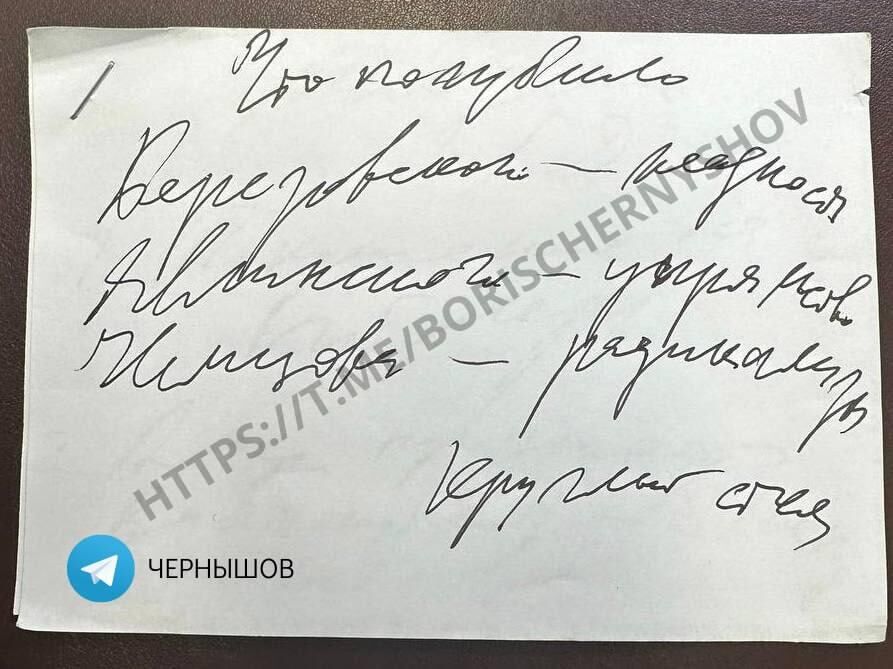 1
Что погубило
Березовского — жадность
Явлинского — упрямство
Немцова — радикализм
Круглый стол
HTTPS://T.ME/BORISCHERNYSHOV
ЧЕРНЫШОВ